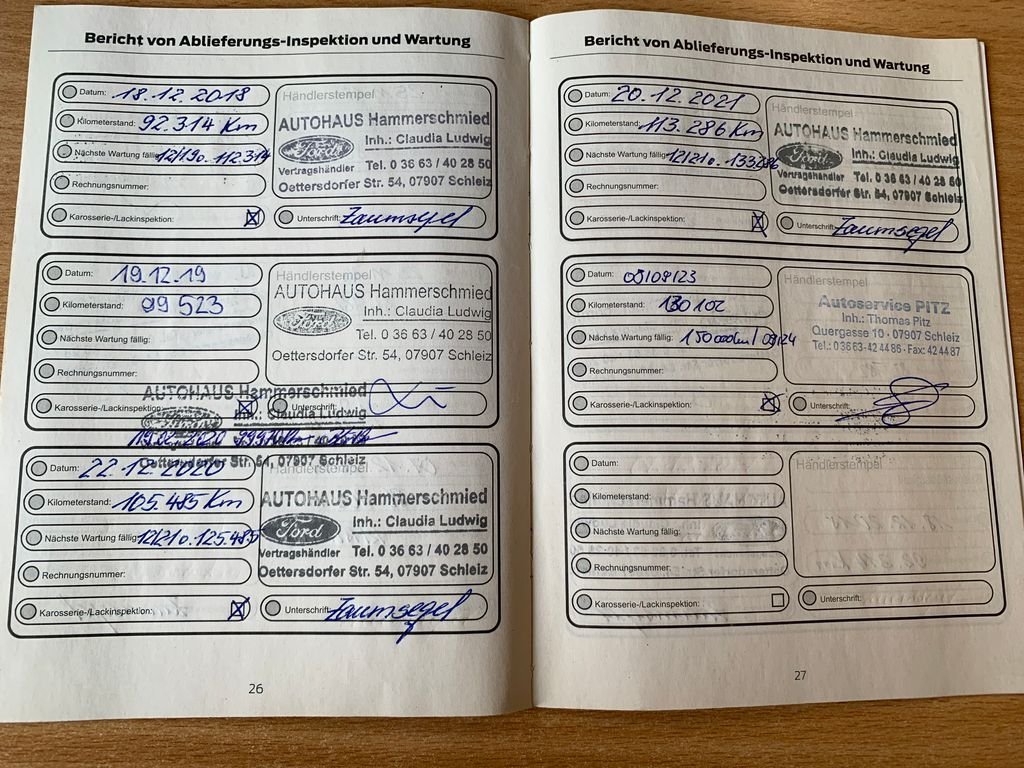 Bericht von Ablieferungs-Inspektion und Wartung
Datum: 18.12.2018
Kilometerstand: 92.314 Km
Nächste Wartung fällig: 12/19 o. 112.314
Rechnungsnummer:
Karosserie-/Lackinspektion:
Händlerstempel
AUTOHAUS Hammerschmied
Ford
Inh.: Claudia Ludwig
Vertragshändler Tel. 0 36 63 / 40 28 50
Oettersdorfer Str. 54, 07907 Schleiz
Unterschrift: Zaumsegel
Datum: 19.12.19
Kilometerstand: 99 523
Nächste Wartung fällig:
Rechnungsnummer:
Karosserie-/Lackinspektion:
Händlerstempel
AUTOHAUS Hammerschmied
Ford
Inh.: Claudia Ludwig
Tel. 0 36 63 / 40 28 50
Oettersdorfer Str. 54, 07907 Schleiz
Unterschrift:
AUTOHAUS Hammerschmied
Inh.: Claudia Ludwig
19.02.2020
Oettersdorfer Str. 54, 07907 Schleiz
Datum: 22.12.2020
Kilometerstand: 105.485 Km
Nächste Wartung fällig: 12/21 o. 125.485
Rechnungsnummer:
Karosserie-/Lackinspektion:
Händlerstempel
AUTOHAUS Hammerschmied
Ford
Inh.: Claudia Ludwig
Vertragshändler Tel. 0 36 63 / 40 28 50
Oettersdorfer Str. 54, 07907 Schleiz
Unterschrift: Zaumsegel
26
Bericht von Ablieferungs-Inspektion und Wartung
Datum: 20.12.2021
Kilometerstand: 113.286 Km
Nächste Wartung fällig: 12/21 o. 133286
Rechnungsnummer:
Karosserie-/Lackinspektion:
Händlerstempel
AUTOHAUS Hammerschmied
Ford
Inh.: Claudia Ludwig
Vertragshändler Tel. 0 36 63 / 40 28 50
Oettersdorfer Str. 54, 07907 Schleiz
Unterschrift: Zaumsegel
Datum: 05/09/23
Kilometerstand: 130102
Nächste Wartung fällig: 150000km / 09/24
Rechnungsnummer:
Karosserie-/Lackinspektion:
Händlerstempel
Autoservice PITZ
Inh.: Thomas Pitz
Quergasse 10 · 07907 Schleiz
Tel.: 0 36 63-42 44 86 · Fax: 42 44 87
Unterschrift:
Datum:
Kilometerstand:
Nächste Wartung fällig:
Rechnungsnummer:
Karosserie-/Lackinspektion:
Händlerstempel
Unterschrift:
27